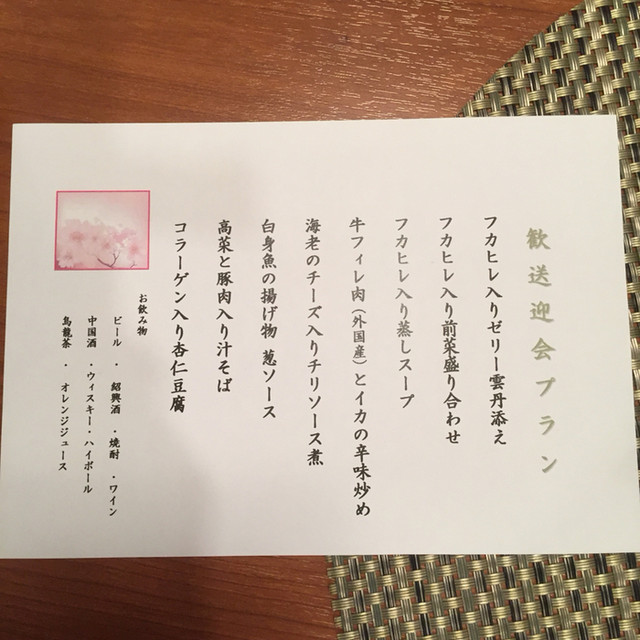 歓送迎会プラン
フカヒレ入りゼリー雲丹添え
フカヒレ入り前菜盛り合わせ
フカヒレ入り蒸しスープ
牛フィレ肉（外国産）とイカの辛味炒め
海老のチーズ入りチリソース煮
白身魚の揚げ物 葱ソース
高菜と豚肉入り汁そば
コラーゲン入り杏仁豆腐
お飲み物
ビール ・ 紹興酒 ・焼酎 ・ワイン
中国酒 ・ウィスキー・ハイボール
烏龍茶 ・ オレンジジュース